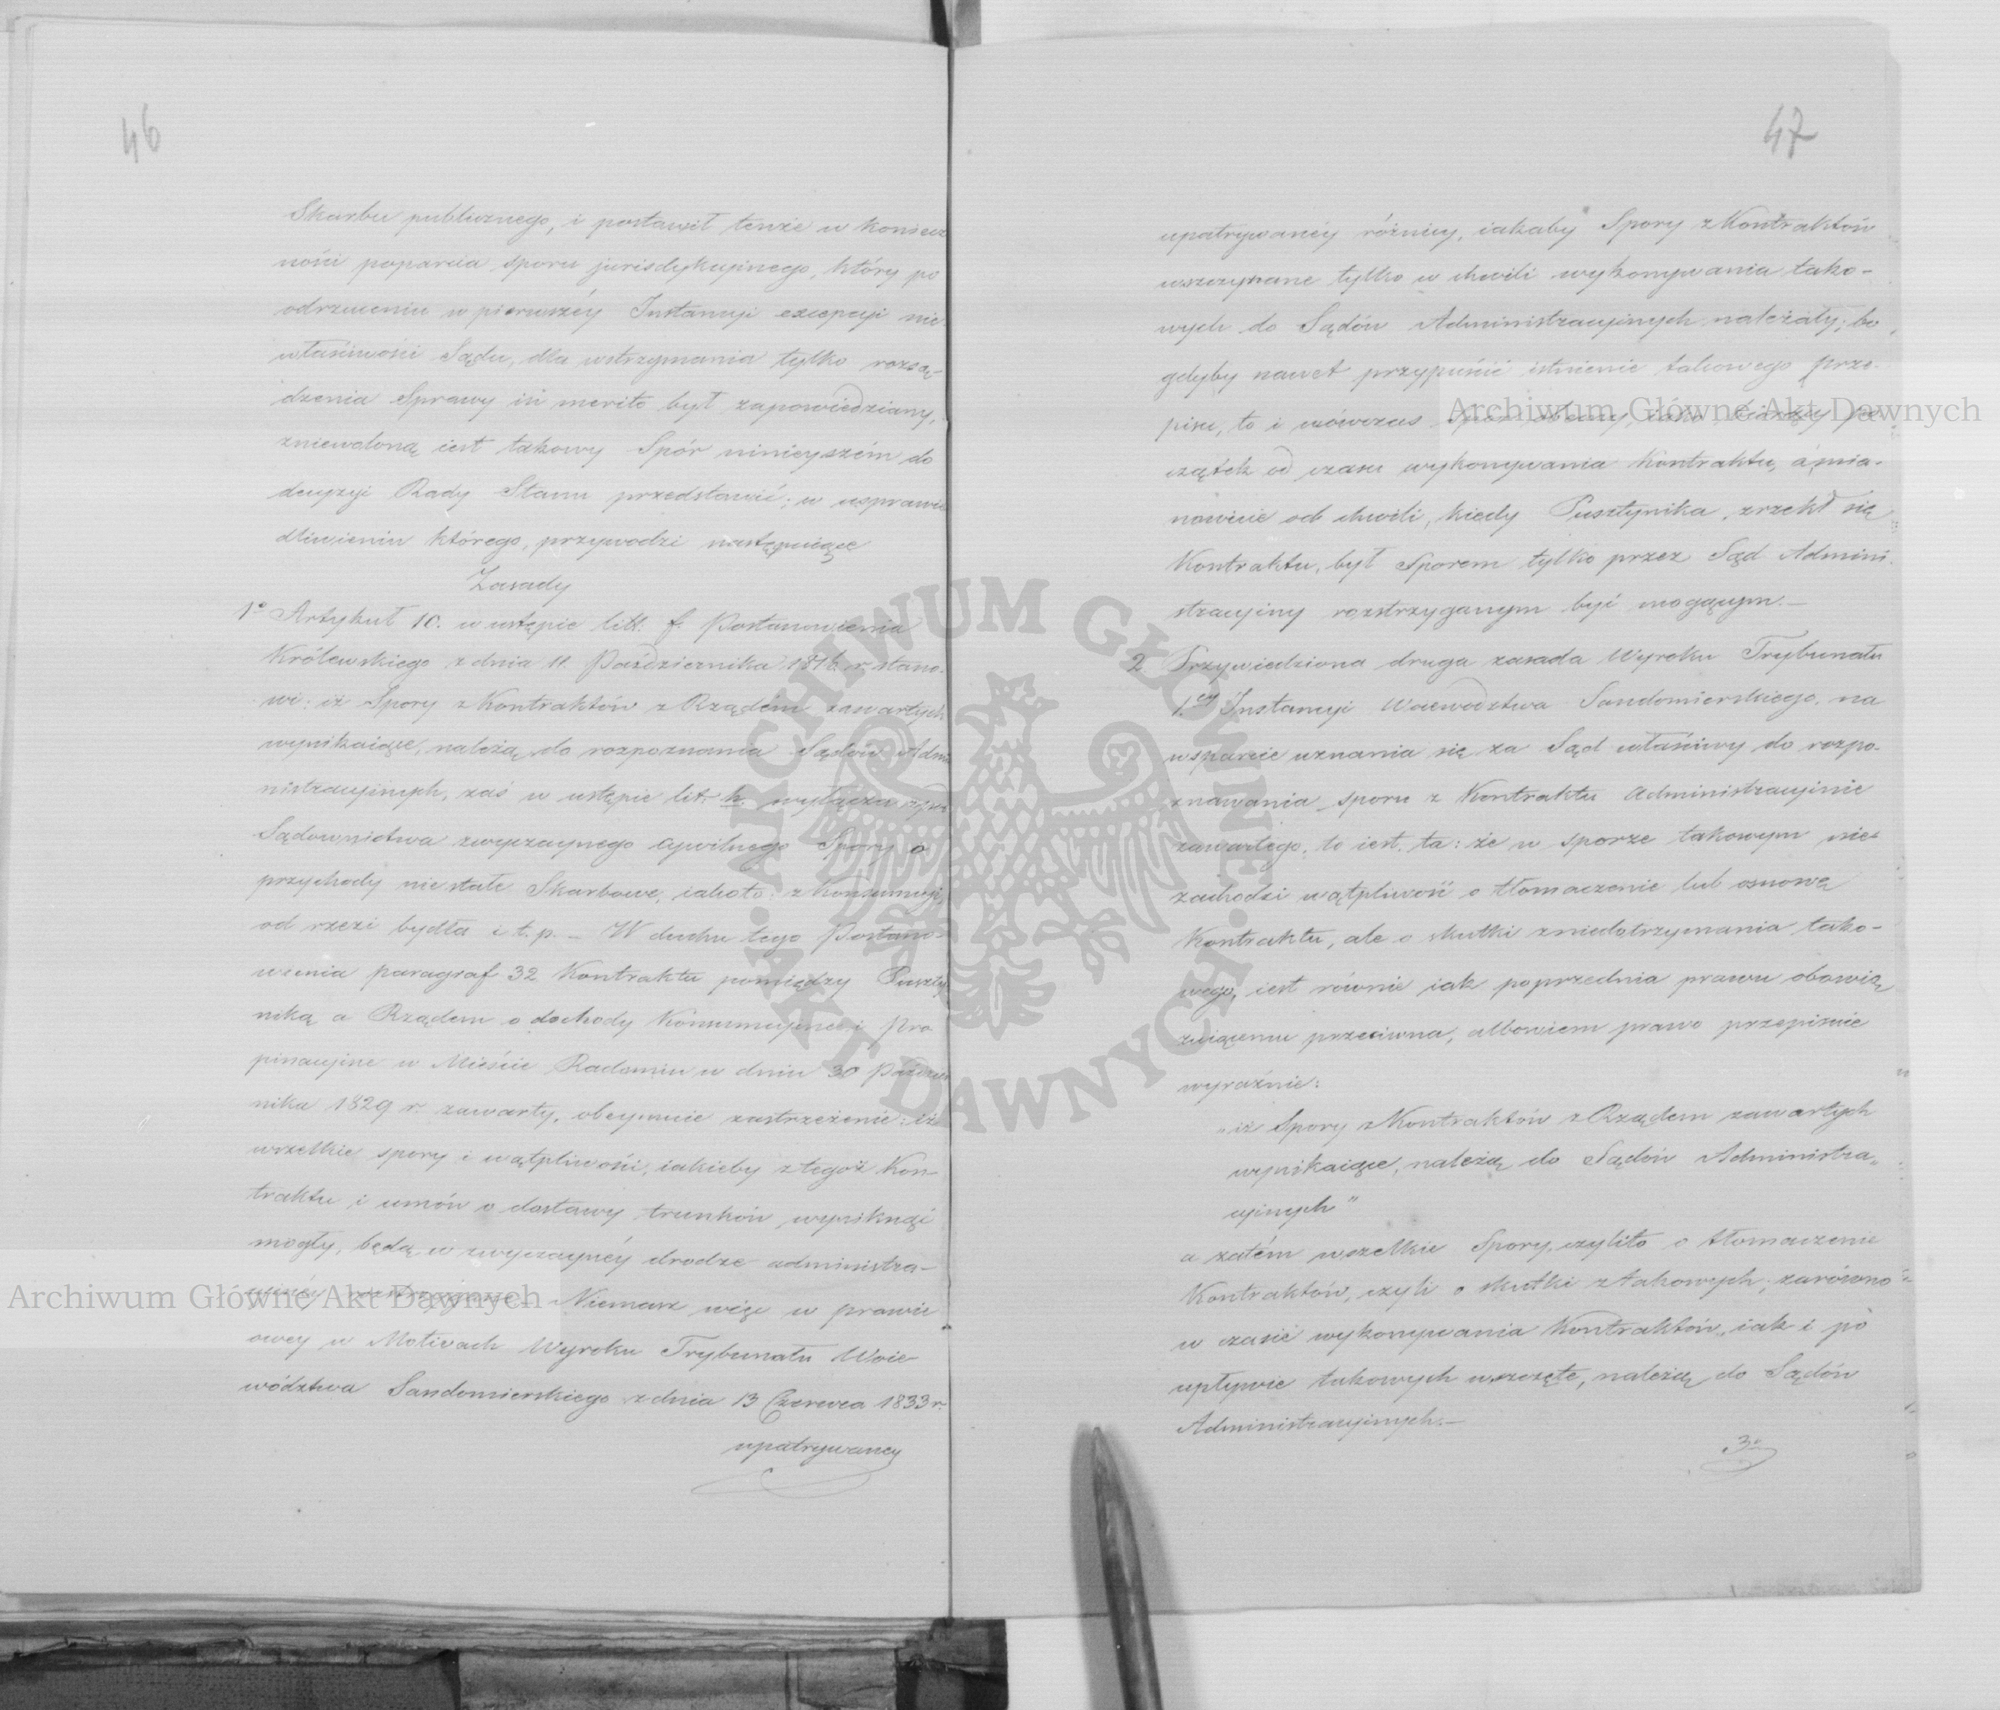 46
Skarbu publicznego, i postawił tenże w koniecz
ności poparcia sporu jurisdykcyinego, który po
odrzuceniu w pierwszéy Instancyi excepcyi nie
właściwości Sądu, dla wstrzymania tylko rozsą-
dzenia Sprawy in merito był zapowiedziany,
zniewoloną iest takowy Spór ninieyszém do
decyzyi Rady Stanu przedstawić; w usprawie
dliwieniu którego, przywodzi następuiące
Zasady
1o Artykuł 10. w ustępie litt. f. Postanowienia
Królewskiego z dnia 11. Października 1816 r. stano-
wi: iż Spory z Kontraktów z Rządem zawartych
wynikaiące, należą do rozpoznania Sądów Admi
nistracyinych, zaś w ustępie lit: h. wyłącza z pod
Sądownictwa zwyczaynego cywilnego Spory o
przychody niestałe Skarbowe, iakoto: z Konsumcyi,
od rzezi bydła i t. p. – W duchu tego Postano-
wienia paragraf 32 Kontraktu pomiędzy Puszty
niką a Rządem o dochody Konsumcyine i Pro
pinacyine w Mieście Radomiu w dniu 30 Paździer
nika 1829 r. zawarty, obeymuie zastrzeżenie: iż
wszelkie spory i wątpliwości, iakieby z tegoż Kon-
traktu i umów o dostawy trunków wyniknąć
mogły, będą w zwyczaynéy drodze administra-
cyinéy rozstrzygane. – Niemasz więc w prawie
owey w Motivach Wyroku Trybunału Woie
wództwa Sandomierskiego z dnia 13 Czerwca 1833 r.
upatrywaney
47
upatrywanéy różnicy, iakaby Spory z Kontraktów
wszczynane tylko w chwili wykonywania tako-
wych do Sądów Administracyinych należały; bo
gdyby nawet przypuścić istnienie takowego prze-
pisu, to i wówczas Spór obecny, iako biorący po
czątek od czasu wykonywania Kontraktu, a mia-
nowicie od chwili, kiedy Pusztynika zrzekł się
Kontraktu, był Sporem tylko przez Sąd Admini-
stracyiny rozstrzyganym być mogącym. –
2 Przywiedziona druga zasada Wyroku Trybunału
1.éy Instancyi Woiewództwa Sandomierskiego, na
wsparcie uznania się za Sąd właściwy do rozpo-
znawania sporu z Kontraktu administracyinie
zawartego, to iest. ta: że w sporze takowym nie
zachodzi wątpliwość o tłomaczenie lub osnowę
Kontraktu, ale o skutki z niedotrzymania tako-
wego, iest równie iak poprzednia prawu obowią
zuiącemu przeciwna, albowiem prawo przepisuie
wyraźnie:
„iż Spory z Kontraktów z Rządem zawartych
wynikaiące, należą do Sądów Administra„
cyinych"
a zatém wszelkie Spory, czyli to o tłomaczenie
Kontraktów, czyli o skutki z takowych, zarówno
w czasie wykonywania Kontraktów, iak i po
upływie takowych wszczęte, należą do Sądów
Administracyinych. –
3o
Archiwum Główne Akt Dawnych
Archiwum Główne Akt Dawnych
· ARCHIWUM GŁÓWNE · AKT DAWNYCH